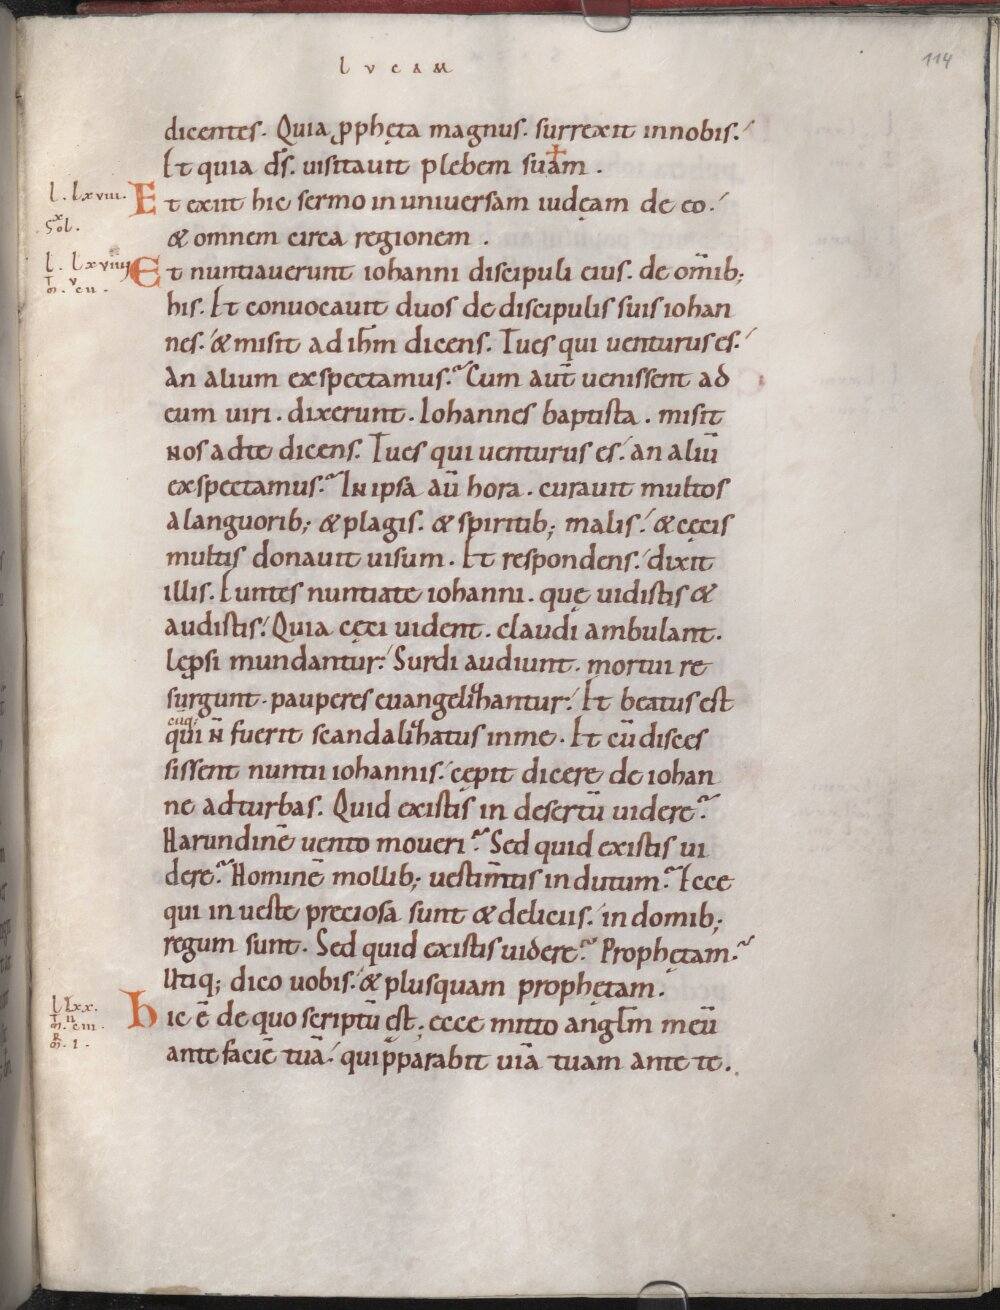 LVCAM
114
dicentes. Quia ꝓphęta magnus. surrexit innobis.
Et quia d̄s. uisitauit plebem suam.
l. lxviii.
x
sol.
Et exiit hic sermo in universam iudęam de eo.
& omnem circa regionem.
l. lxviiii
T v
m. cii.
Et nuntiaverunt iohanni discipuli eius. de om̄ib;
his. Et convocauit duos de discipulis suis iohan
nes. & misit ad ih̄m dicens. Tu es qui venturus es.
An alium exspectamus. Cum aut̄ uenissent ad
eum uiri. dixerunt. Iohannes baptista. misit
nos adte dicens. Tu es qui uenturus es. an aliū
exspectamus. In ipsa aū hora. curauit multos
alanguorib; & plagis. & spiritib; malis. & cęcis
multis donauit uisum. Et respondens. dixit
illis. Euntes nuntiate iohanni. quę uidistis &
audistis. Quia cęci uident. claudi ambulant.
lęprsi mundantur. Surdi audiunt. mortui re
surgunt. pauperes euangelizantur. Et beatus est
cūq;
qui n̄ fuerit scandalizatus inme. Et cū disces
sissent nuntii iohannis. cępit dicere de iohan
ne adturbas. Quid existis in desertū uidere
Harundinē uento moueri Sed quid existis ui
dere. Hominē mollib; uestim̄tis indutum. Ecce
qui in ueste preciosa sunt & deliciis. in domib;
regum sunt. Sed quid existis uidere. Prophętam.
Utiq; dico uobis. & plusquam prophętam.
l lxx.
T ii
m. ciii.
R
m. i.
hic ē de quo scriptū est. ecce mitto angl̄m meū
ante faciē tuā. qui p̄parabit uiā tuam ante te.